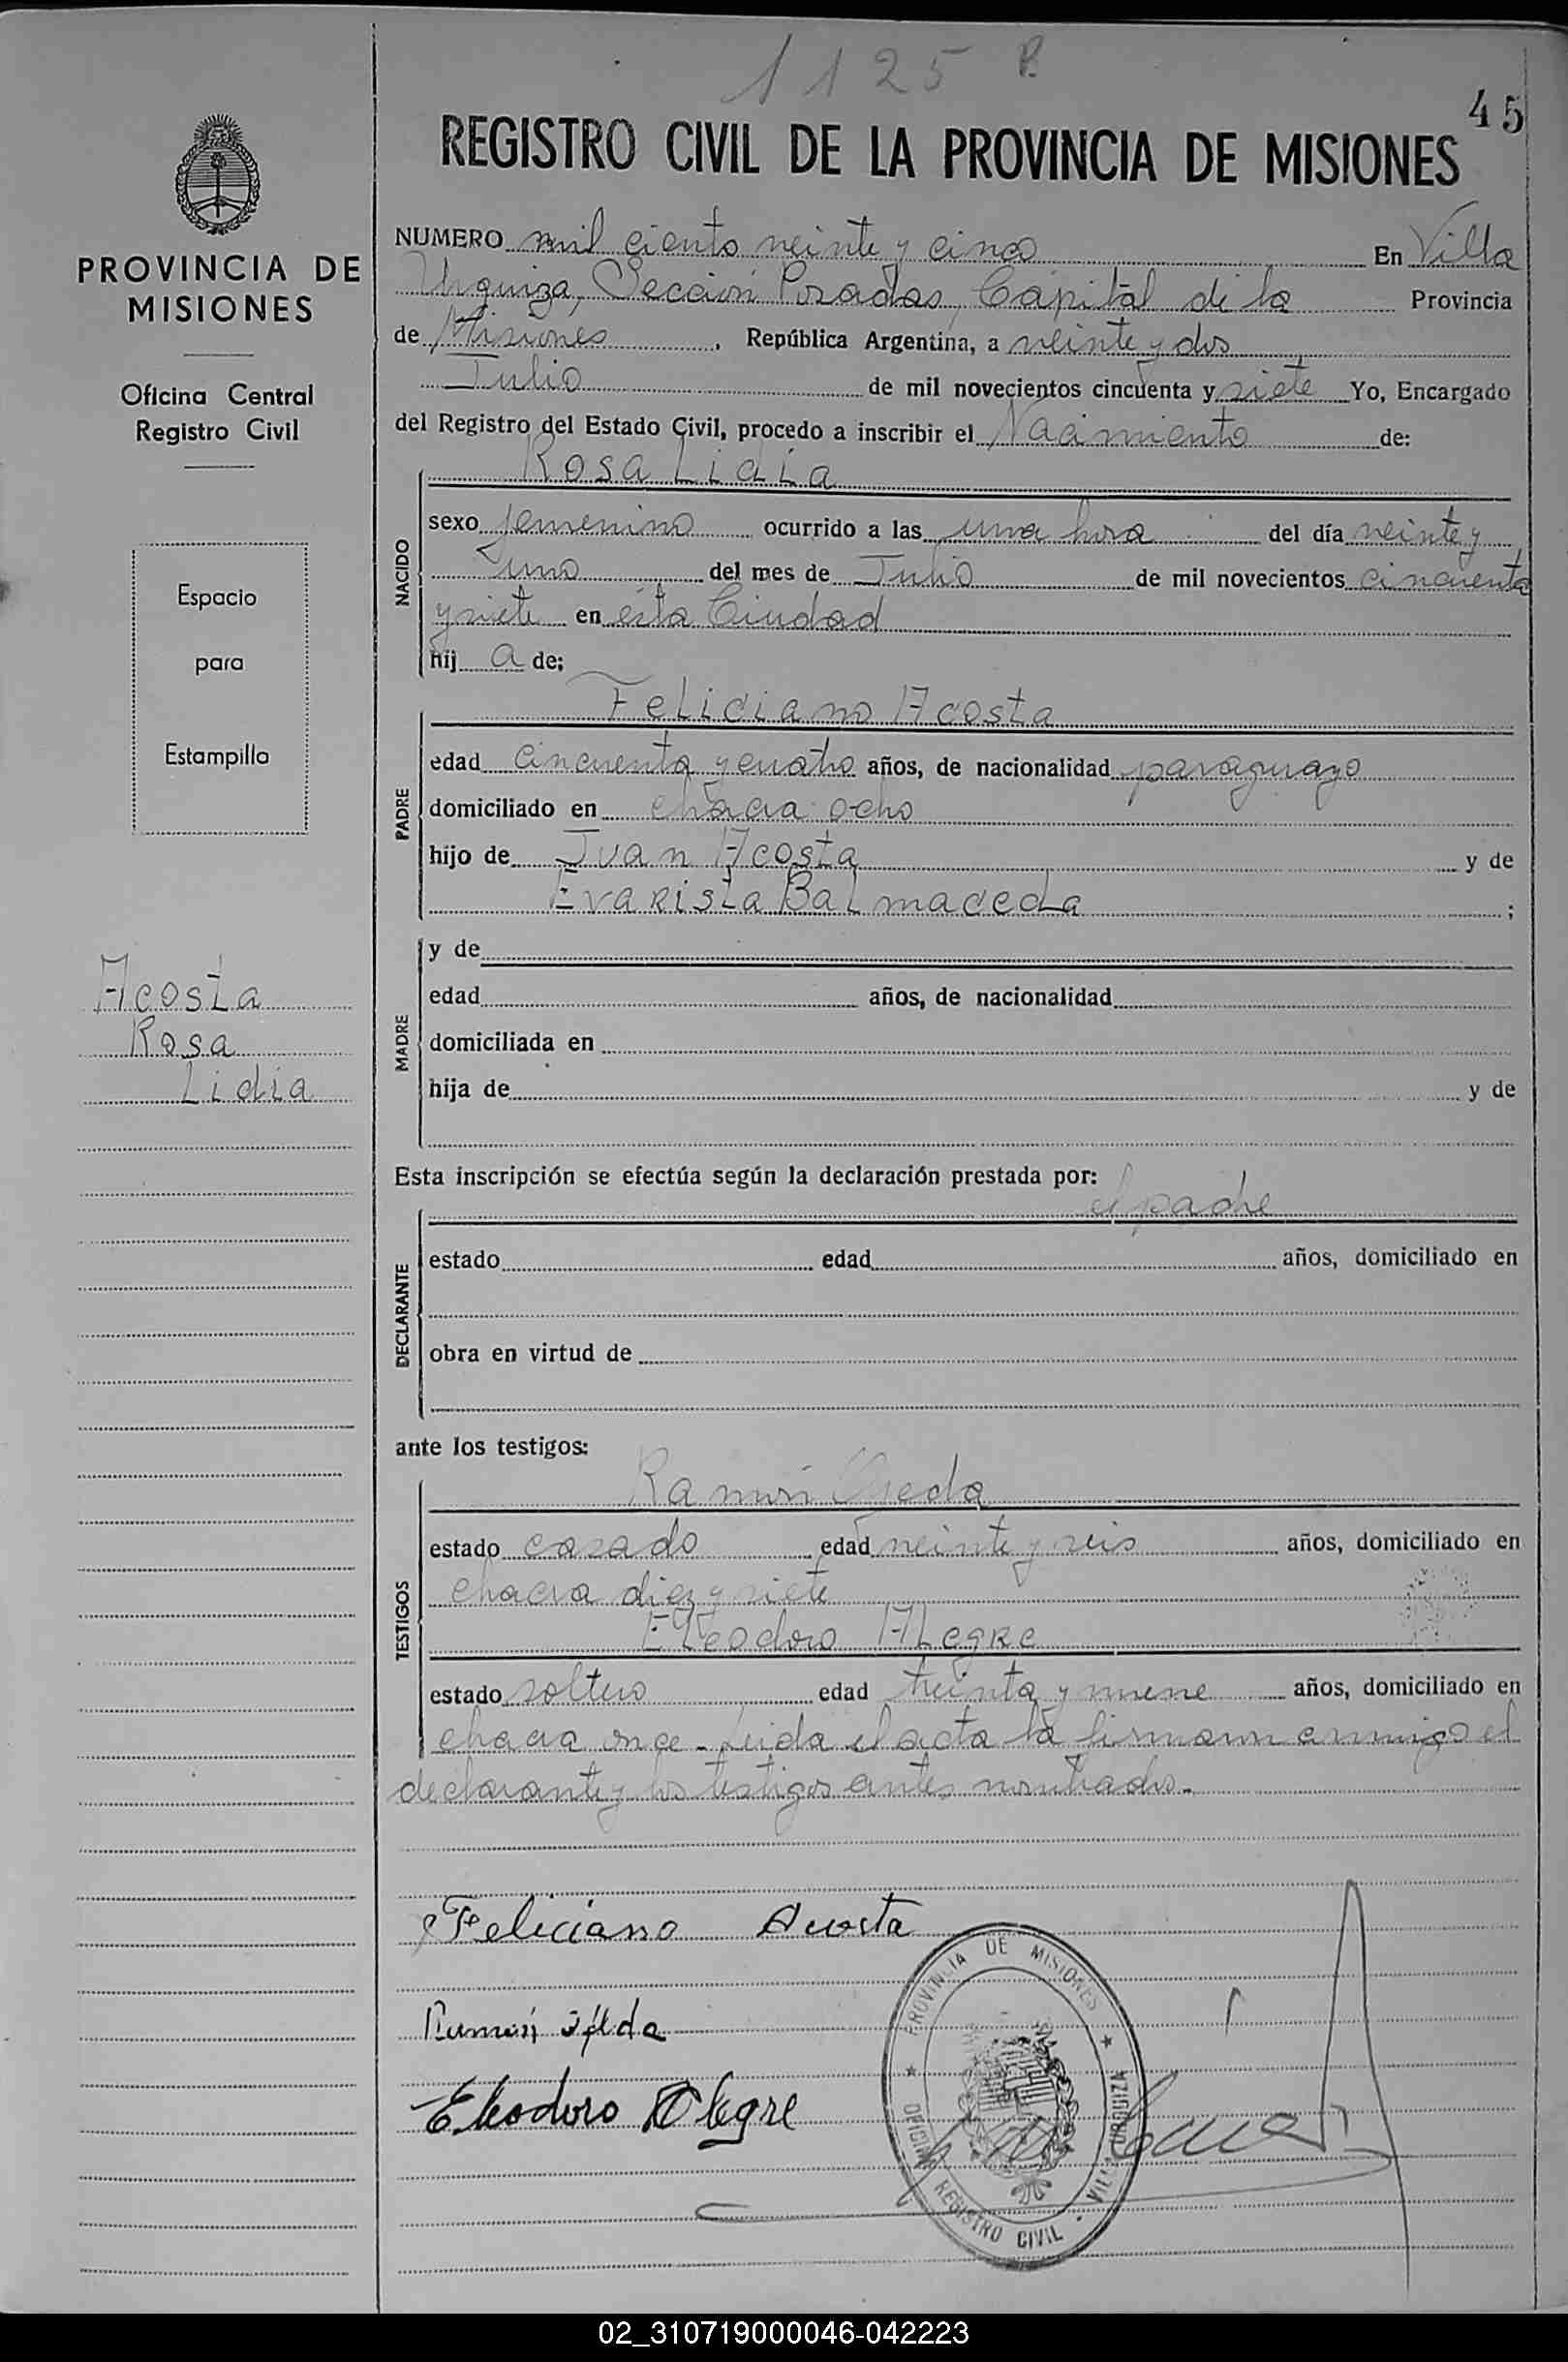 1125 P.
45
REGISTRO CIVIL DE LA PROVINCIA DE MISIONES
PROVINCIA DE
MISIONES
Oficina Central
Registro Civil
Espacio
para
Estampillo
Acosta
Rosa
Lidia
NUMERO mil ciento veinte y cinco En Villa
Urquiza, Sección Posadas, Capital de la Provincia
de Misiones, República Argentina, a veinte y dos
Julio de mil novecientos cincuenta y siete Yo, Encargado
del Registro del Estado Civil, procedo a inscribir el Nacimiento de:
Rosa Lidia
NACIDO
sexo femenino ocurrido a las una hora del día veinte y
uno del mes de Julio de mil novecientos cincuenta
y siete en esta Ciudad
hij a de;
Feliciano Acosta
PADRE
edad cincuenta y cuatro años, de nacionalidad paraguayo
domiciliado en chacra ocho
hijo de Juan Acosta y de
Evarista Balmaceda ;
MADRE
y de
edad años, de nacionalidad
domiciliada en
hija de y de
Esta inscripción se efectúa según la declaración prestada por:
el padre
DECLARANTE
estado edad años, domiciliado en
obra en virtud de
ante los testigos:
Ramón Ojeda
TESTIGOS
estado casado edad veinte y seis años, domiciliado en
chacra diez y siete
Eleodoro Alegre
estado soltero edad treinta y nueve años, domiciliado en
chacra once. Leida el acta la firmaron conmigo el
declarante y los testigos antes nombrados.-
Feliciano Acosta
Ramón Ojeda
Eleodoro Alegre
PROVINCIA DE MISIONES
OFICINA REGISTRO CIVIL · VILLA URQUIZA
02_310719000046-042223